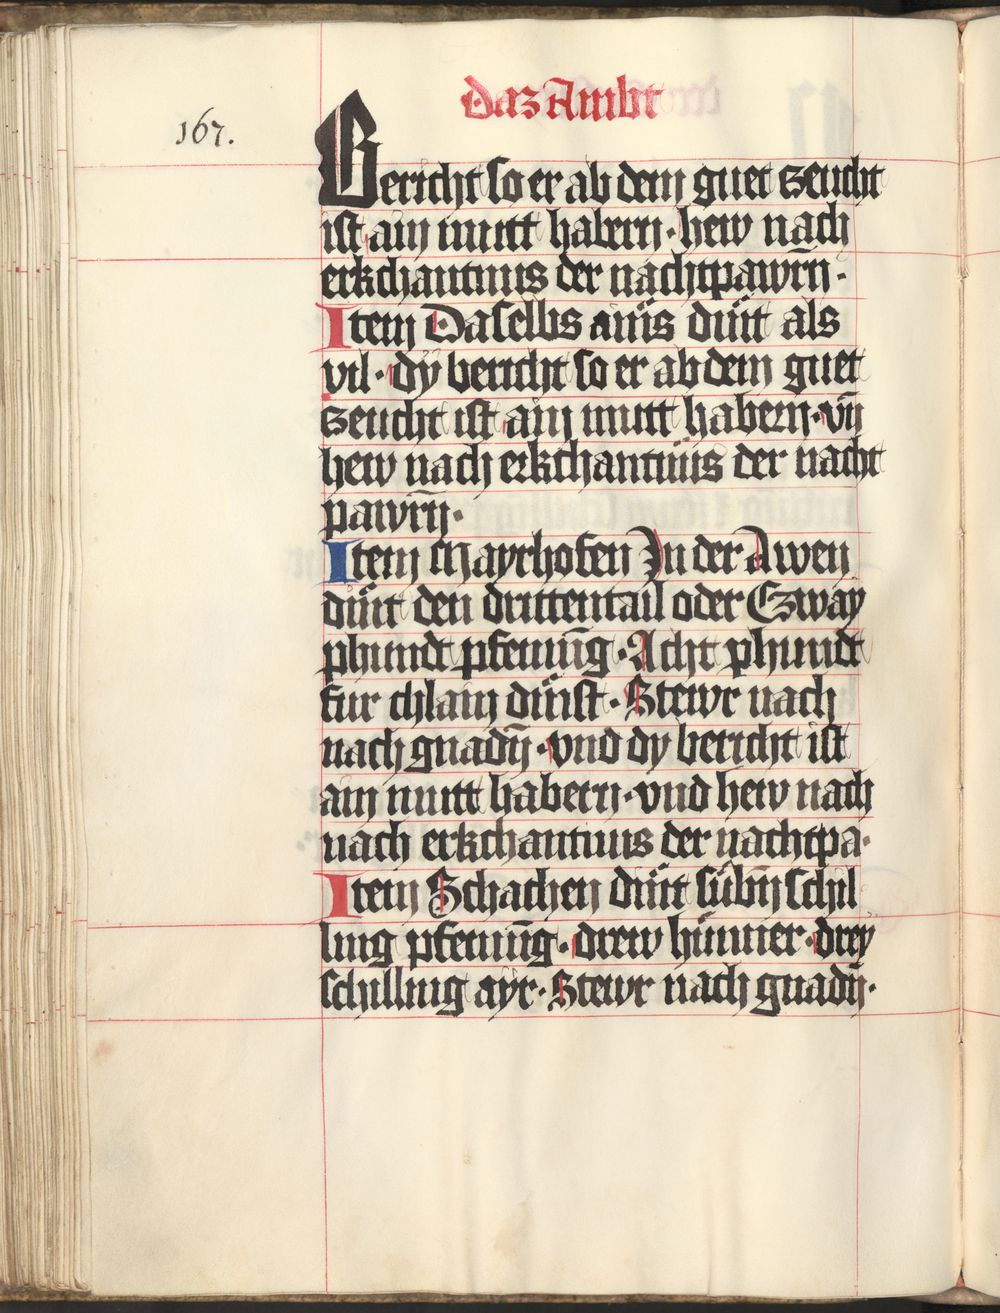 Das Ambt
167.
Bericht so er ab dem guet zeucht
ist ain mutt habern · hew nach
erkchantnus der nachtpawrn̄ ·
Item Daselbs ainꝰs dint als
vil · dÿ bericht so er ab dem guet
zeucht ist ain mutt habern · vn̄
hew nach erkchantnüs der nacht
pawrn̄ ·
Item Mayrhofen In der Awen
dint den drittentail oder Czway
phundt pfenning · Acht phundt
fur chlain dinst · Stewr nach
nach gnadn̄ · vnd dy bericht ist
ain mutt habern · vnd hew nach
nach erkchantnus der nachtpa·
Item Schachen dint sübn̄ schil
ling pfenning · drew hünner · drey
schilling ayr · Stewr nach gnadn̄ ·